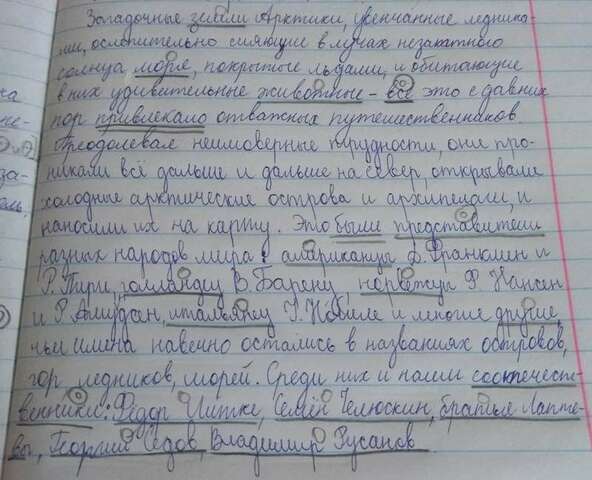 Загадочные земли Арктики, увенчанные ледника-
ми, ослепительно сияющие в лучах незакатного
солнца моря, покрытые льдами, и обитающие
в них удивительные животные – всё это с давних
пор привлекало отважных путешественников.
Преодолевая неимоверные трудности, они про-
никали всё дальше и дальше на север, открывали
холодные арктические острова и архипелаги, и
наносили их на карту. Это были представители
разных народов мира: американцы Д. Франклин и
Р. Пири, голландец В. Баренц, норвежцы Ф. Нансен
и Р. Амудсен, итальянец У. Нобиле и многие другие
чьи имена навечно остались в названиях островов,
гор ледников, морей. Среди них и наши соотечест-
венники: Фёдор Литке, Семён Челюскин, братья Лапте-
вы, Георгий Седов Владимир Русанов.